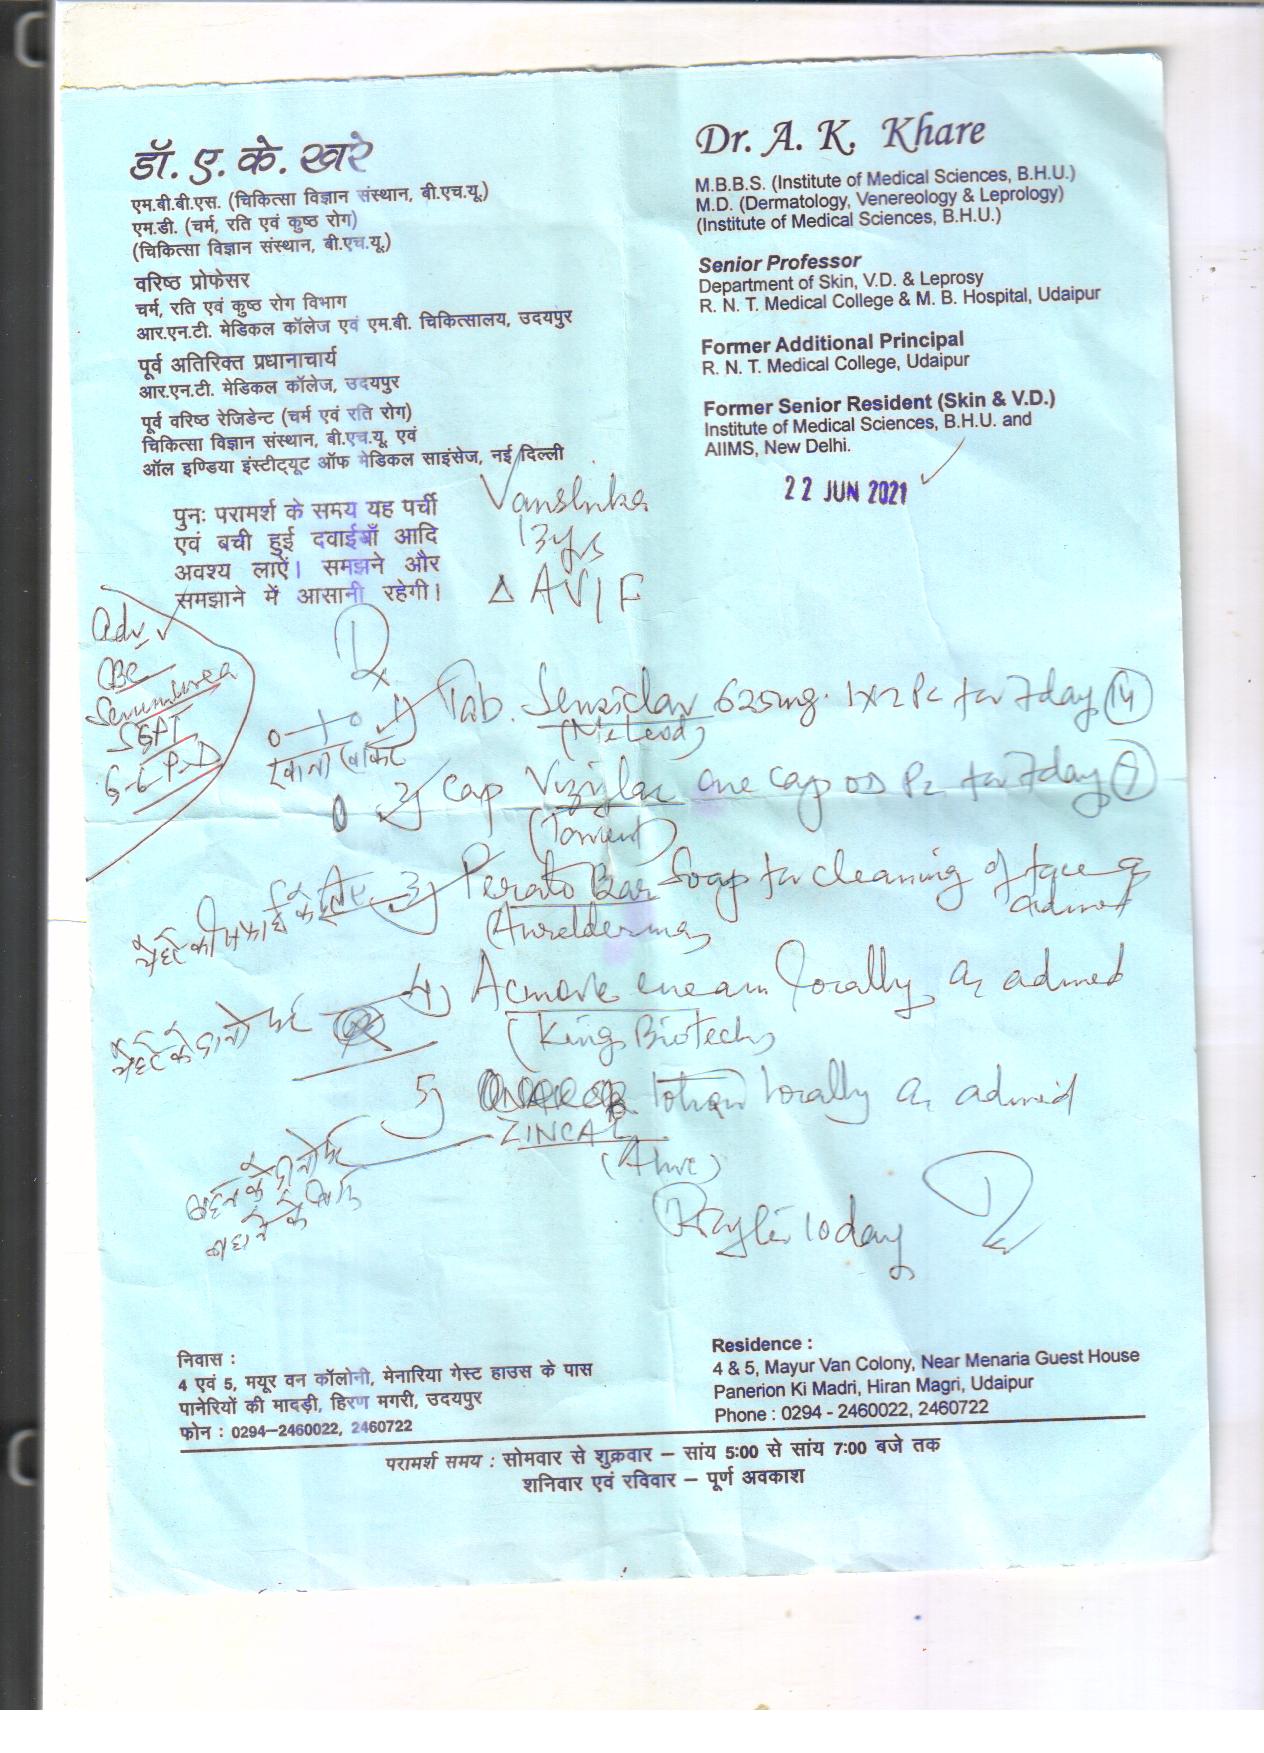 डॉ. ए. के. खरे
एम.बी.बी.एस. (चिकित्सा विज्ञान संस्थान, बी.एच.यू.)
एम.डी. (चर्म, रति एवं कुष्ठ रोग)
(चिकित्सा विज्ञान संस्थान, बी.एच.यू.)
वरिष्ठ प्रोफेसर
चर्म, रति एवं कुष्ठ रोग विभाग
आर.एन.टी. मेडिकल कॉलेज एवं एम.बी. चिकित्सालय, उदयपुर
पूर्व अतिरिक्त प्रधानाचार्य
आर.एन.टी. मेडिकल कॉलेज, उदयपुर
पूर्व वरिष्ठ रेजिडेन्ट (चर्म एवं रति रोग)
चिकित्सा विज्ञान संस्थान, बी.एच.यू. एवं
ऑल इण्डिया इंस्टीट्यूट ऑफ मेडिकल साइंसेज, नई दिल्ली
Dr. A. K. Khare
M.B.B.S. (Institute of Medical Sciences, B.H.U.)
M.D. (Dermatology, Venereology & Leprology)
(Institute of Medical Sciences, B.H.U.)
Senior Professor
Department of Skin, V.D. & Leprosy
R. N. T. Medical College & M. B. Hospital, Udaipur
Former Additional Principal
R. N. T. Medical College, Udaipur
Former Senior Resident (Skin & V.D.)
Institute of Medical Sciences, B.H.U. and
AIIMS, New Delhi.
22 JUN 2021
पुनः परामर्श के समय यह पर्ची
एवं बची हुई दवाईयाँ आदि
अवश्य लाऐं। समझने और
समझाने में आसानी रहेगी।
Vanshika
13 yrs
Δ AV/F
Adv
CBC
Serum urea
SGPT
G-6 P-D
Rx
1) Tab. 625mg. 1x2 Pc for 7 day 14
खाना खाकर
2) Cap one cap OD Pc for 7 day 7
(Torrent)
3) Bar Soap for cleaning of face as
advised
चेहरे की सफाई के लिए
4) cream locally as advised
(King Biotech)
चेहरे के दानो पर
5) lotion locally as advised
ZINCAL
बदन के दानो पर
10 day
निवास :
4 एवं 5, मयूर वन कॉलोनी, मेनारिया गेस्ट हाउस के पास
पानेरियों की मादड़ी, हिरण मगरी, उदयपुर
फोन : 0294–2460022, 2460722
Residence :
4 & 5, Mayur Van Colony, Near Menaria Guest House
Panerion Ki Madri, Hiran Magri, Udaipur
Phone : 0294 - 2460022, 2460722
परामर्श समय : सोमवार से शुक्रवार – सांय 5:00 से सांय 7:00 बजे तक
शनिवार एवं रविवार – पूर्ण अवकाश